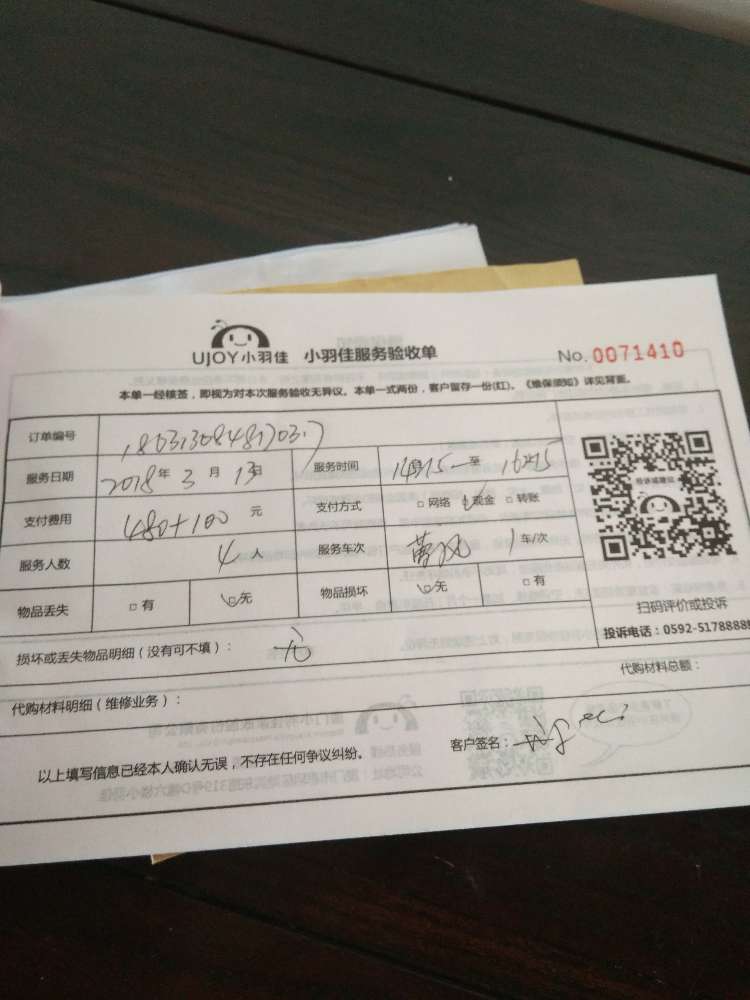 UJOY小羽佳 小羽佳服务验收单 No.0071410
本单一经核签，即视为对本次服务验收无异议。本单一式两份，客户留存一份(红)。《维保须知》详见背面。
订单编号
服务日期 2018年3月13日 服务时间 14时15一至16时15
支付费用 480+100元 支付方式 □网络 □现金 □转账
服务人数 4人 服务车次 1车/次
物品丢失 □有 □无 物品损坏 □无 □有
损坏或丢失物品明细（没有可不填）： 无
投诉或建议
扫码评价或投诉
投诉电话：0592-5178888
代购材料明细（维修业务）： 代购材料总额：
以上填写信息已经本人确认无误，不存在任何争议纠纷。 客户签名：